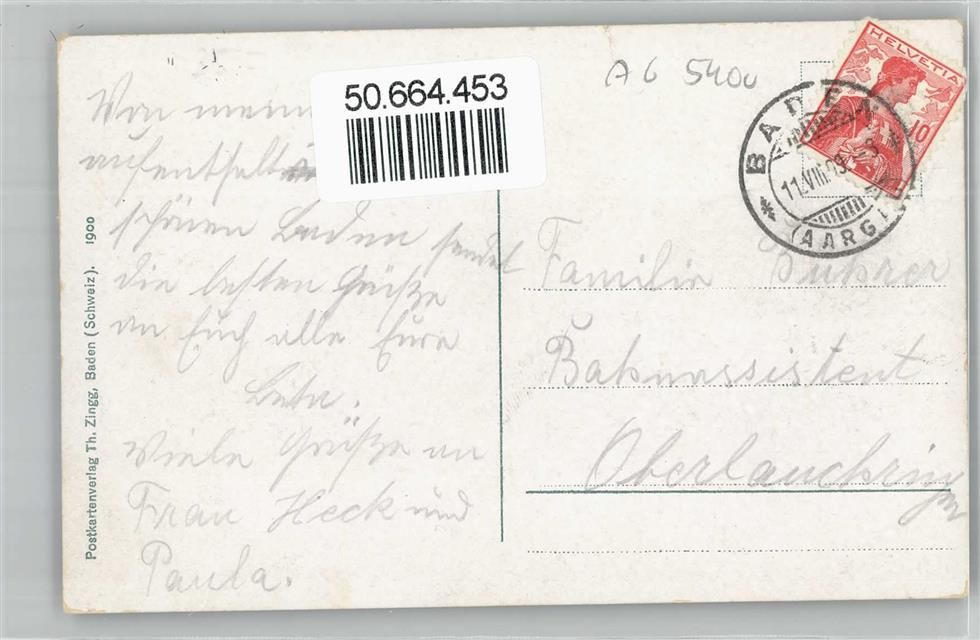 50.664.453
AG 5400
HELVETIA
10
BADEN
11.VIII.09
(AARG.)
Von meinem
aufenthalt im
schönen Baden sendet
die besten Grüße
an Euch alle Eure
Viele Grüße an
Frau Heck und
Paula.
Familie
Bahnassistent
Oberlauchringen
Postkartenverlag Th. Zingg, Baden (Schweiz). 1900